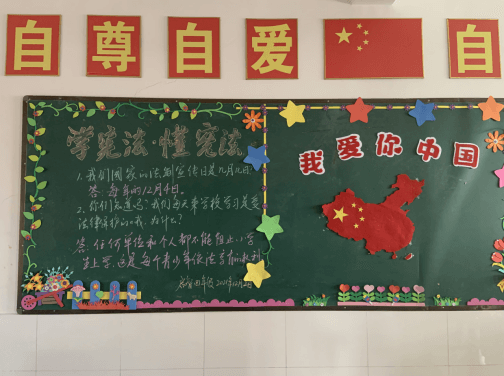 自尊自爱 自
学宪法·懂宪法
我爱你中国
1.我们国家的法制宣传日是几月几日?
答:每年的12月4日。
2.你们知道吗?我们每天来学校学习是受
法律保护的哦,为什么?
答:任何单位和个人都不能阻止小学
生上学,这是每个青少年依法享有的权利
四年级 2021年12月2日